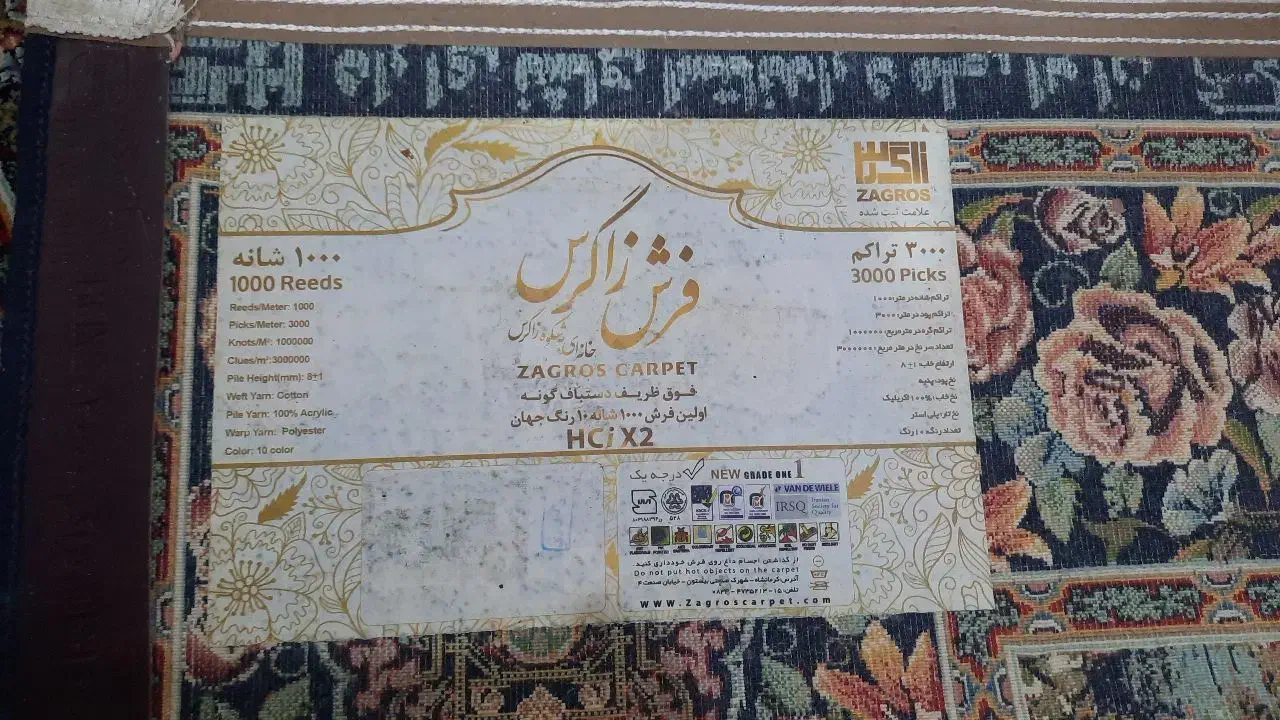 زاگرس
ZAGROS
علامت ثبت شده
۱۰۰۰ شانه
1000 Reeds
Reeds/Meter: 1000
Picks/Meter: 3000
Knots/M²: 1000000
Clues/m²:3000000
Pile Height(mm): 8±1
Weft Yarn: Cotton
Pile Yarn: 100% Acrylic
Warp Yarn: Polyester
Color: 10 color
فرش زاگرس
خانه‌ای به شکوه زاگرس
ZAGROS CARPET
فوق ظریف دستباف گونه
اولین فرش ۱۰۰۰ شانه ۱۰ رنگ جهان
HCi X2
۳۰۰۰ تراکم
3000 Picks
تراکم شانه در متر: ۱۰۰۰
تراکم پود در متر: ۳۰۰۰
تراکم گره در مترمربع: ۱۰۰۰۰۰۰
تعداد سر نخ در متر مربع: ۳۰۰۰۰۰۰
ارتفاع خاب: ۸±۱
نخ پود: پنبه
نخ خاب: ۱۰۰% اکریلیک
نخ تار: پلی استر
تعداد رنگ: ۱۰ رنگ
درجه یک NEW GRADE ONE 1
VAN DE WIELE
IRSQ Iranian Society for Quality
۵۲۸
از گذاشتن اجسام داغ روی فرش خودداری کنید.
Do not put hot objects on the carpet
آدرس: کرمانشاه - شهرک صنعتی بیستون - خیابان صنعت ۴
تلفن: ۱۵ - ۴۷۳۵۲۱۳ - ۰۸۳۲
www.Zagroscarpet.com